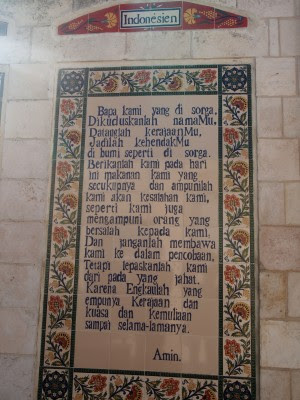 Indonésien
Bapa kami yang di sorga,
Dikuduskanlah namaMu,
Datanglah kerajaanMu,
Jadilah kehendakMu
di bumi seperti di sorga.
Berikanlah kami pada hari
ini makanan kami yang
secukupnya dan ampunilah
kami akan kesalahan kami,
seperti kami juga
mengampuni orang yang
bersalah kepada kami.
Dan janganlah membawa
kami ke dalam pencobaan,
Tetapi lepaskanlah kami
dari pada yang jahat.
Karena Engkaulah yang
empunya Kerajaan dan
kuasa dan kemuliaan
sampai selama-lamanya.
Amin.